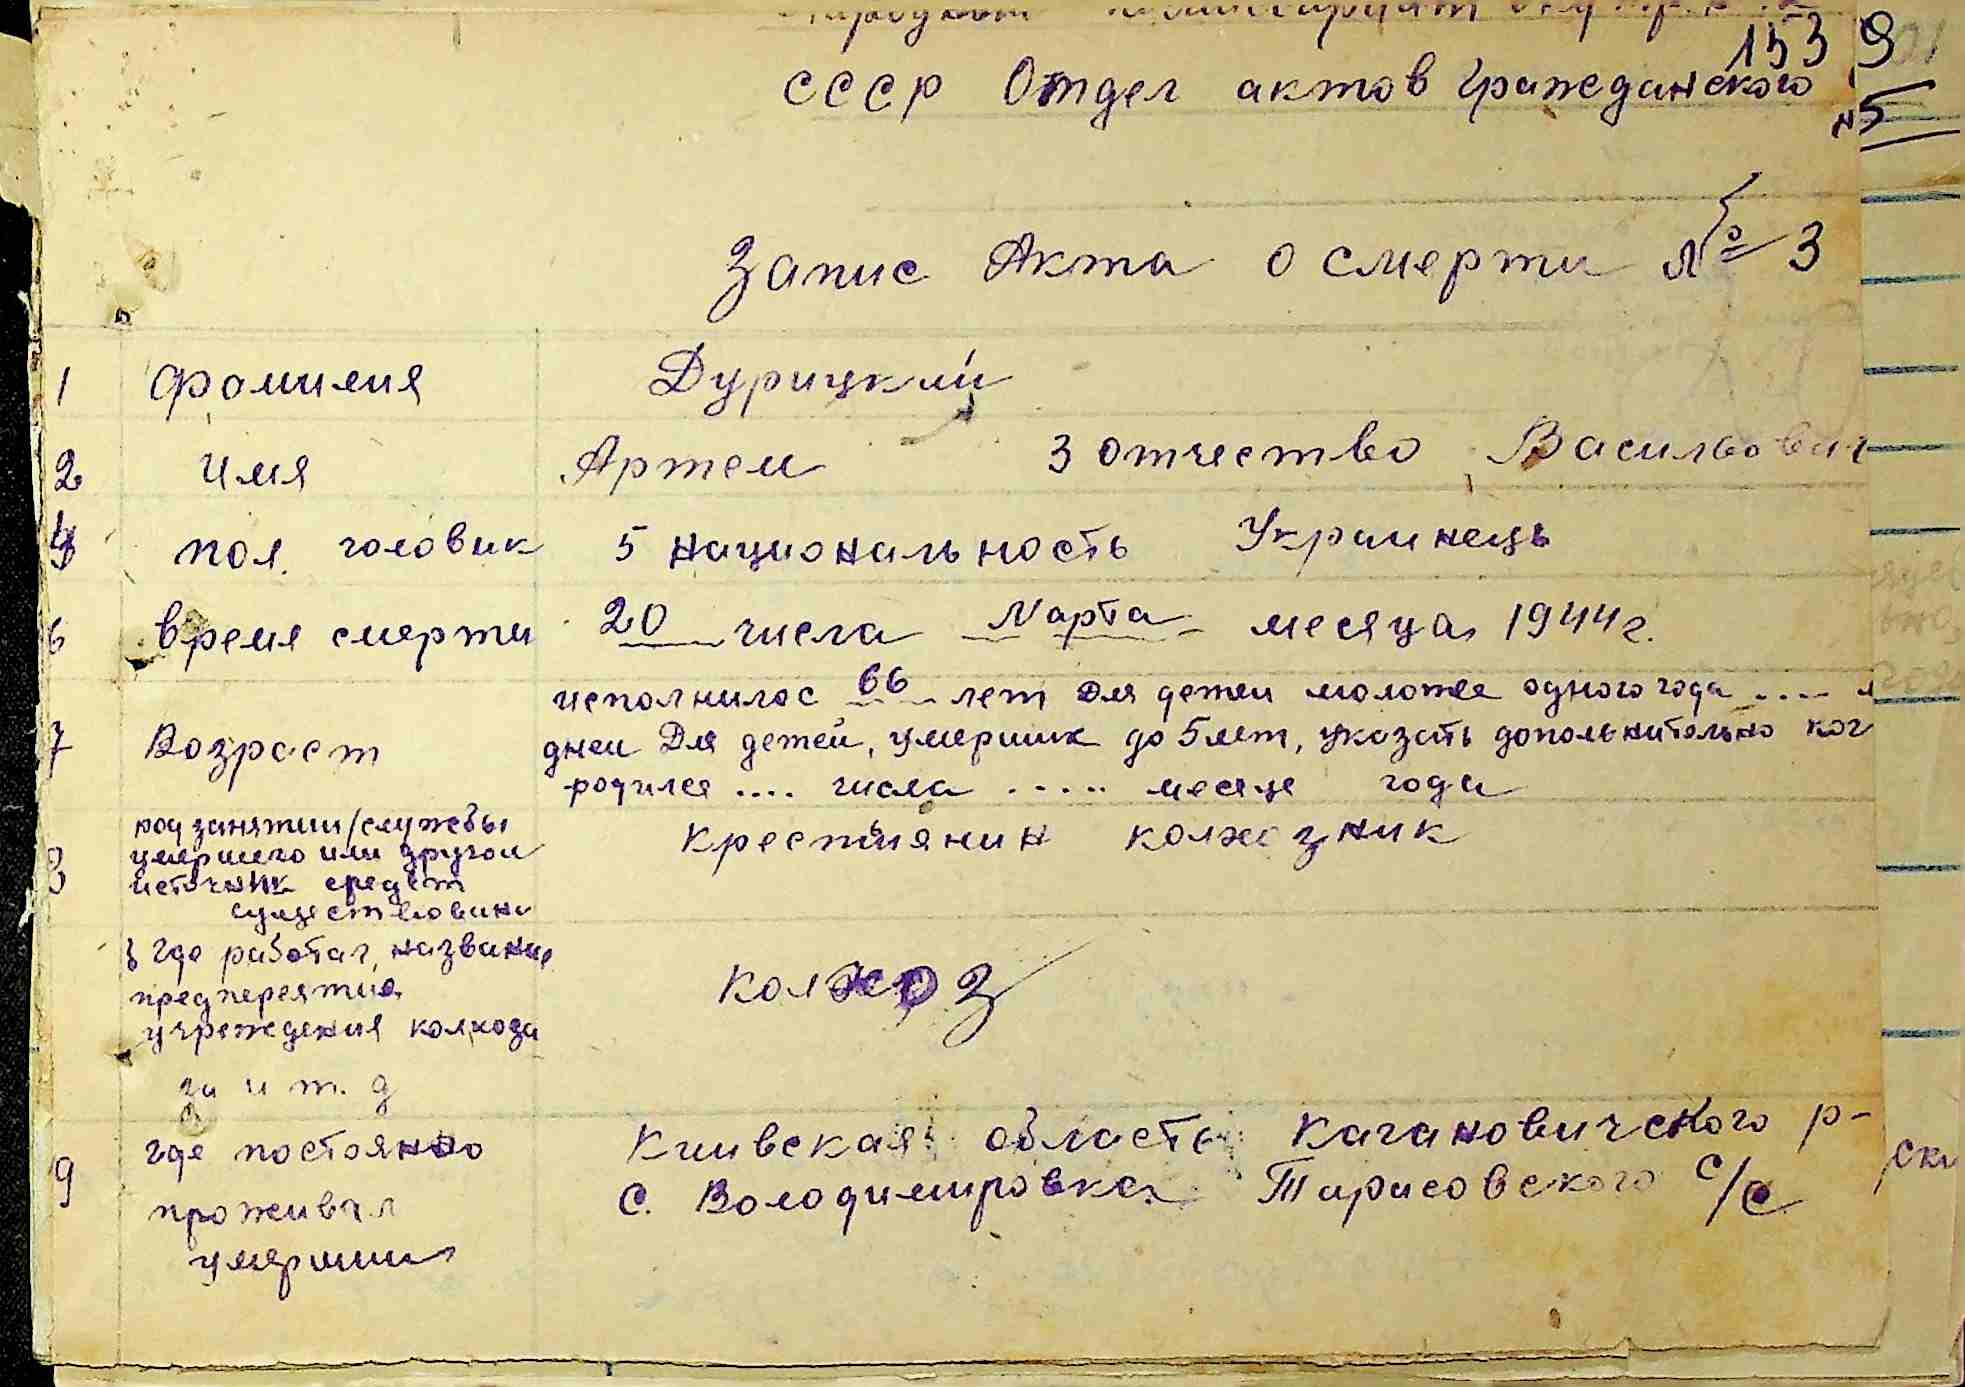 153 9
СССР Отдел актов Гражданского
№5
Запис Акта о смерти № 3
1 фамилия Дурицкий
2 имя Артем 3 отчество Васильович
4 пол. чоловик 5 национальность Украинець
6 время смерти 20 числа Марта месяца 1944 г.
7 Возраст исполнилос 66 лет Для детей моложе одного года ....
дней Для детей, умерших до 5 лет, указать допольнительно ког
родился .... числа ..... месяце года
8 род занятии/службы
умершего или другой
источник средст
существовани
крестиянин колхозник
где работал, название
предпереятия,
учреждения колхоза
за и т. д
колхоз
9 где постоянно
проживал
умерший
Киивская область Кагановичского р-
с. Володимировка Тарасовского с/с